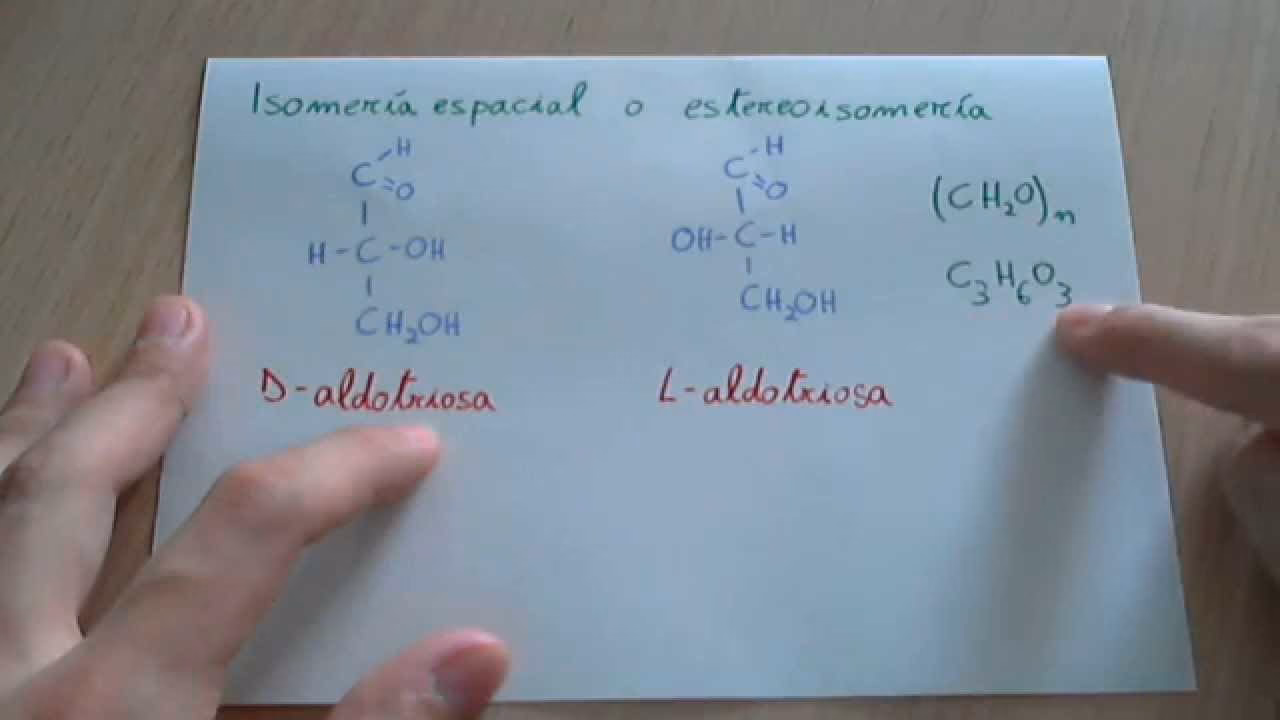 Isomería espacial o estereoisomería
H
C=O
H-C-OH
CH₂OH
D-aldotriosa
H
C=O
OH-C-H
CH₂OH
L-aldotriosa
(CH₂O)n
C₃H₆O₃